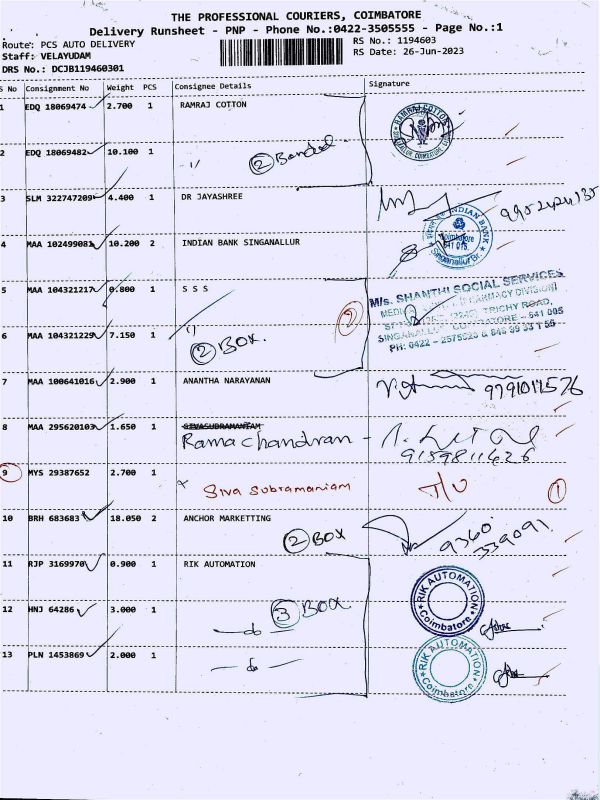 THE PROFESSIONAL COURIERS, COIMBATORE
Delivery Runsheet - PNP - Phone No.:0422-3505555 - Page No.:1
Route: PCS AUTO DELIVERY
RS No.: 1194603
Staff: VELAYUDAM
RS Date: 26-Jun-2023
DRS No.: DCJB119460301
S No Consignment No Weight PCS Consignee Details Signature
1 EDQ 18069474 2.700 1 RAMRAJ COTTON
RAMRAJ COTTON
2 EDQ 18069482 10.100 1 2 Bundel
3 SLM 322747209 4.400 1 DR JAYASHREE
9952424135
4 MAA 102499081 10.200 2 INDIAN BANK SINGANALLUR
INDIAN BANK
Coimbatore
641 005.
Singanallur Br.
5 MAA 104321217 0.800 1 S S S
M/s. SHANTHI SOCIAL SERVICES
TRICHY ROAD,
SINGANALLUR COIMBATORE - 641 005
6 MAA 104321229 7.150 1 2 BOX. 2
7 MAA 100641016 2.900 1 ANANTHA NARAYANAN
8 MAA 295620103 1.650 1 SIVASUBRAMANIAM
Ramachandran -
9159811626
9 MYS 29387652 2.700 1
Siva Subramaniam 1
10 BRH 683683 18.050 2 ANCHOR MARKETTING
2 BOX 9360
339091
11 RJP 3169970 0.900 1 RIK AUTOMATION
RIK AUTOMATION
Coimbatore
12 HNJ 64286 3.000 1 3 BOX
- do -
13 PLN 1453869 2.000 1
- do -
RIK AUTOMATION
Coimbatore